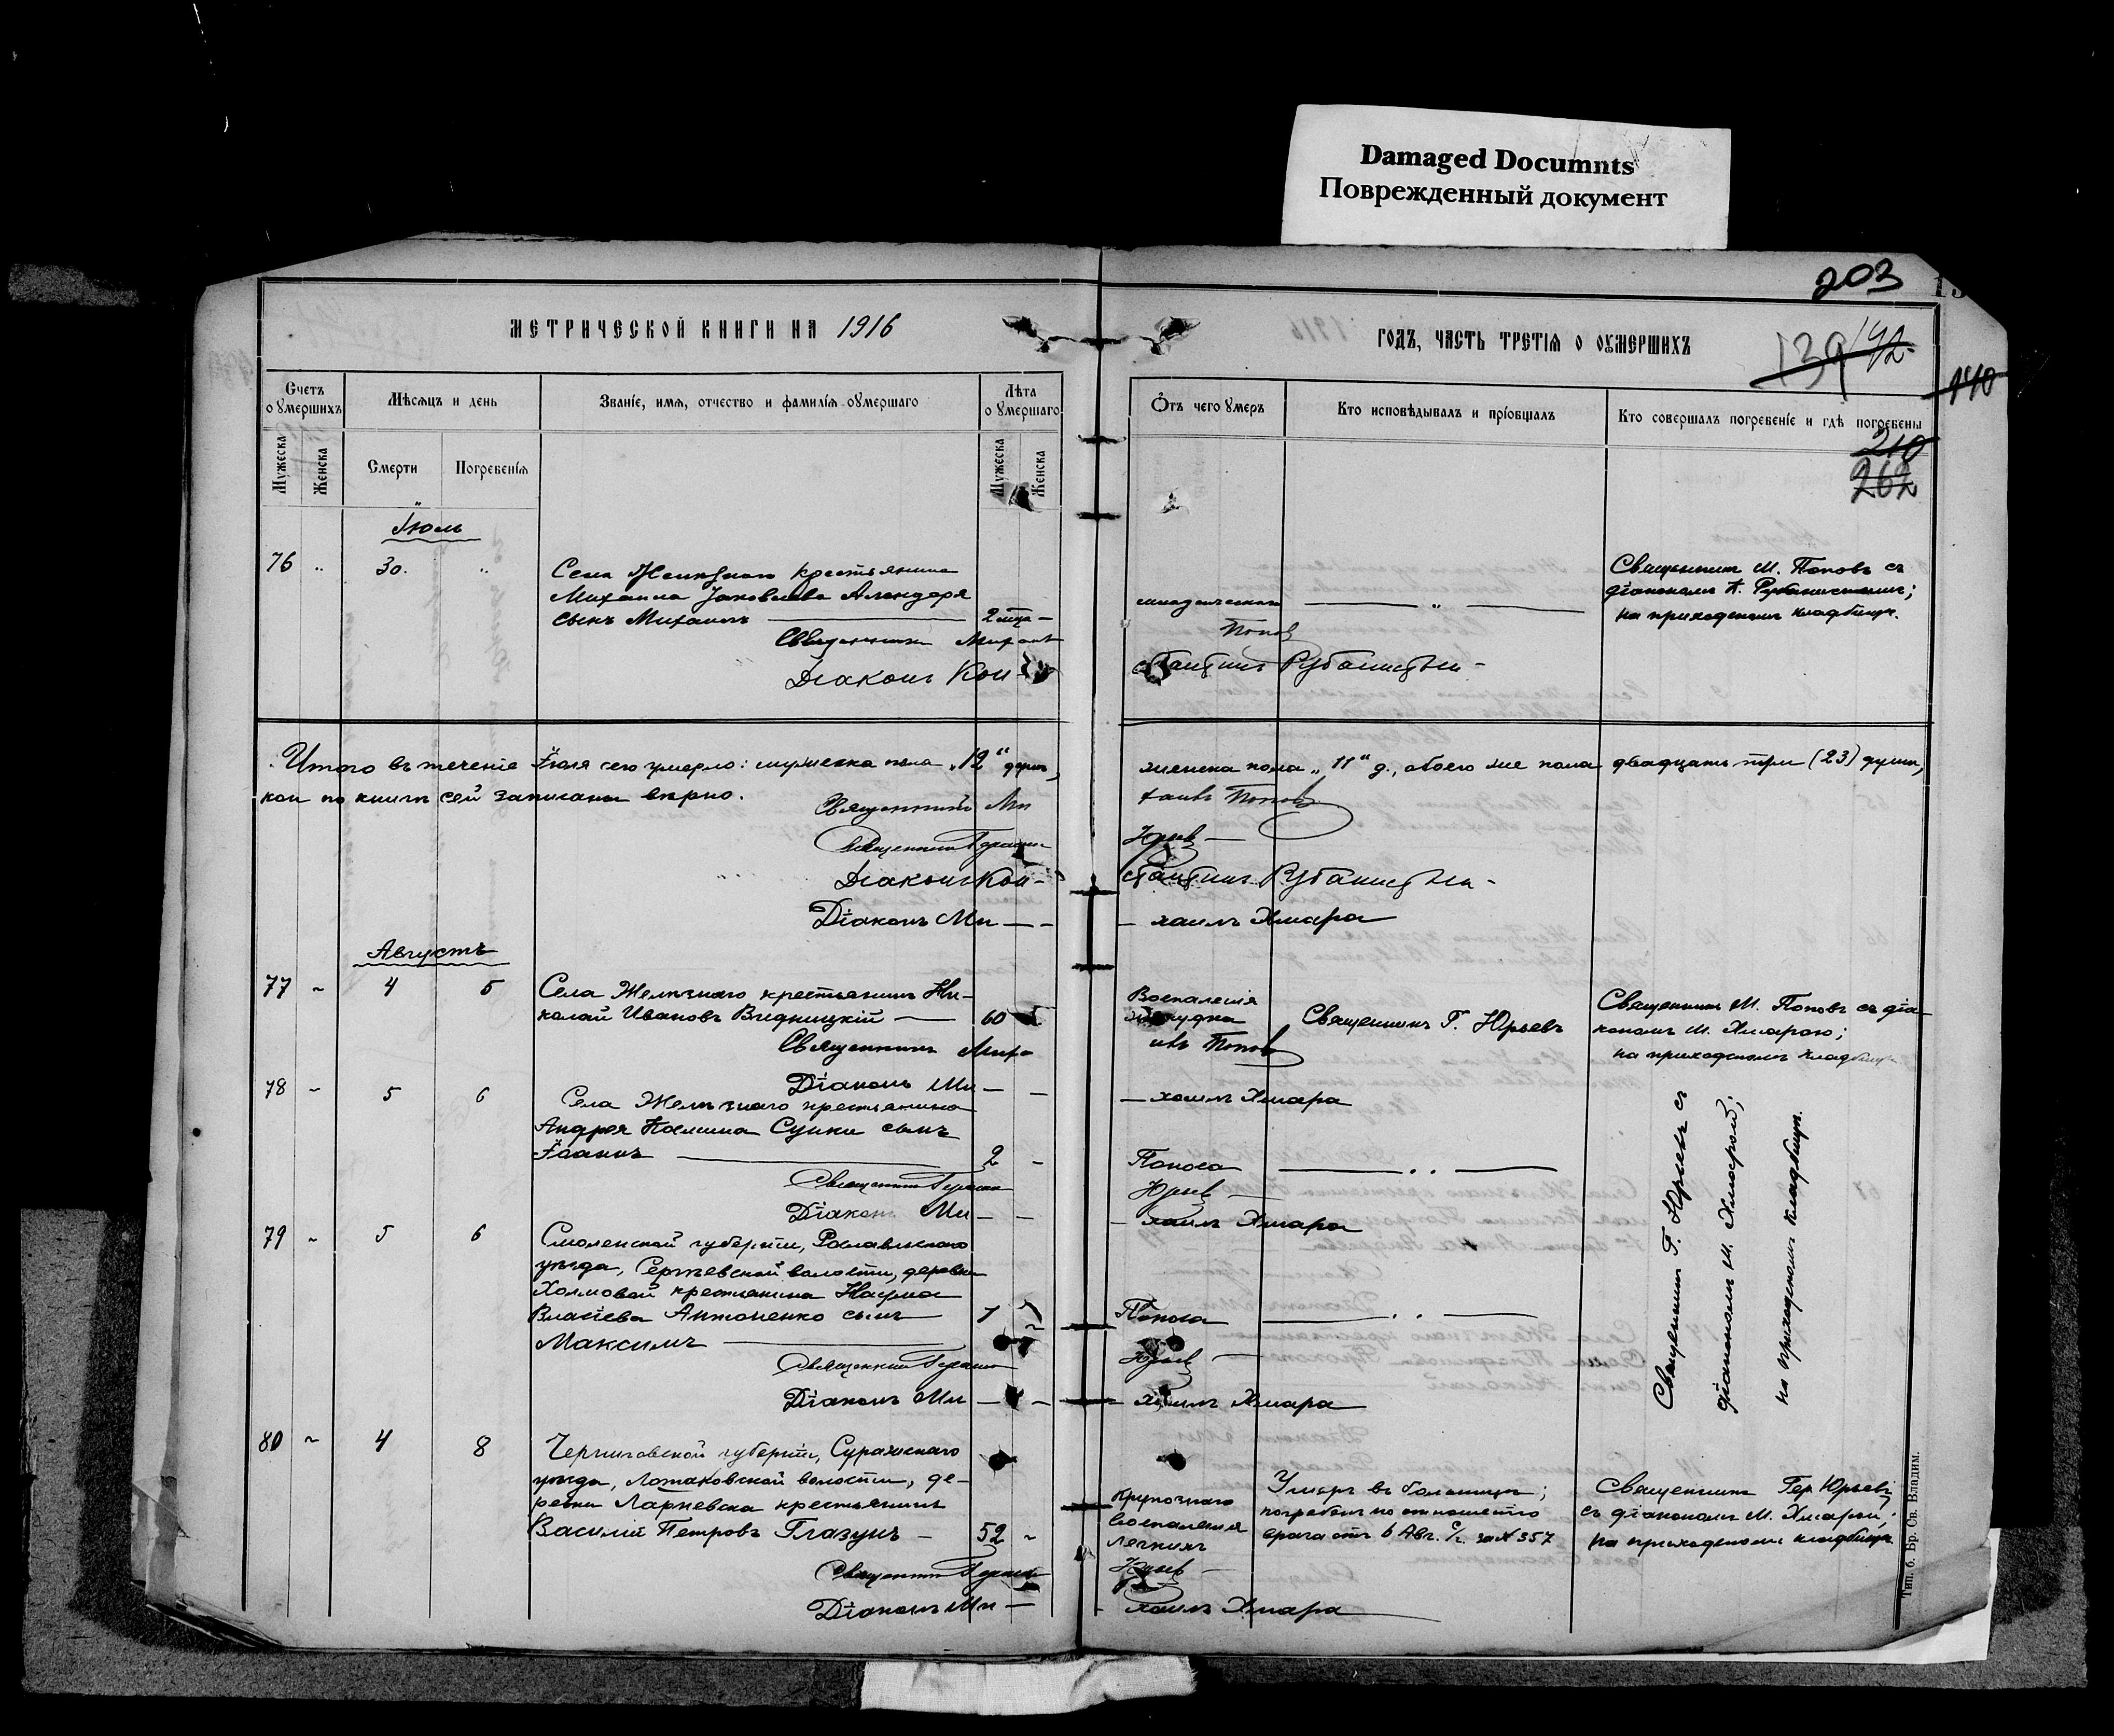 Damaged Documnts
Поврежденный документ
203
МЕТРИЧЕСКОЙ КНИГИ НА 1916
ГОДЪ, ЧАСТЬ ТРЕТІЯ О ОУМЕРШИХЪ
139 142
140
Счетъ оумершихъ
Мѣсяцъ и день
Званіе, имя, отчество и фамилія оумершаго
Лѣта оумершаго
Отъ чего умеръ
Кто исповѣдывалъ и пріобщалъ
Кто совершалъ погребеніе и гдѣ погребены
Мужеска
Женска
Смерти
Погребенія
Мужеска
Женска
210
262
Іюль
76 " 30. "
Села Желѣзнаго крестьянина
Михаила Іаковлева
сынъ Михаилъ — 2 мца —
Священникъ Михаилъ Попов
Діаконъ Константинъ Рубанистый
младенческой
— " —
Священник М. Поповъ съ
діакономъ К. Рубанистымъ;
на приходском кладбищѣ.
Итого въ теченіе Іюля сего умерло: мужеска пола „12" душъ, женска пола „11" д., обоего же пола двадцать три (23) души,
кои по книгѣ сей записаны вѣрно.
Священникъ Михаилъ Попов
Священникъ Герасим Юрьев
Діаконъ Константинъ Рубанистый
Діаконъ Михаилъ Хмара
Августъ
77 ~ 4 5
Села Желѣзнаго крестьянинъ Ни-
колай Ивановъ Видницкій — 60
Воспаленія
желудка
Священникъ Г. Юрьевъ
Священникъ М. Поповъ съ діа-
кономъ М. Хмарою;
на приходскомъ кладбищѣ
Священникъ Михаилъ Попов
Діаконъ Михаилъ Хмара
78 ~ 5 6
Села Желѣзнаго крестьянина
Андрея сынъ
Іоаннъ — 2 –
Поноса
Священникъ Герасим Юрьев
Діаконъ Михаилъ Хмара
79 ~ 5 6
Смоленской губерніи, Рославльскаго
уѣзда, волости, деревни
Холмовой крестьянина Наума
Власіева Антоненко сынъ 1
Максимъ
Поноса
Священникъ Герасим Юрьев
Діаконъ Михаилъ Хмара
Священникъ Г. Юрьевъ съ
діакономъ М. Хмарой;
на приходскомъ кладбищѣ.
80 ~ 4 8
Черниговской губерніи, Суражскаго
уѣзда, Лотаковской волости, де-
ревни Ларневска крестьянинъ
Василій Петровъ Глазунъ – 52 ~
Крупознаго
воспаленія
легкихъ
Умеръ въ больницѣ;
погребенъ по отношенію
врача отъ 6 Авг. с/г. за № 357
Священникъ Гер. Юрьевъ
съ діакономъ М. Хмарой;
на приходскомъ кладбищѣ
Священникъ Герасим Юрьев
Діаконъ Михаилъ Хмара
Тип. б. Бр. Св. Владим.